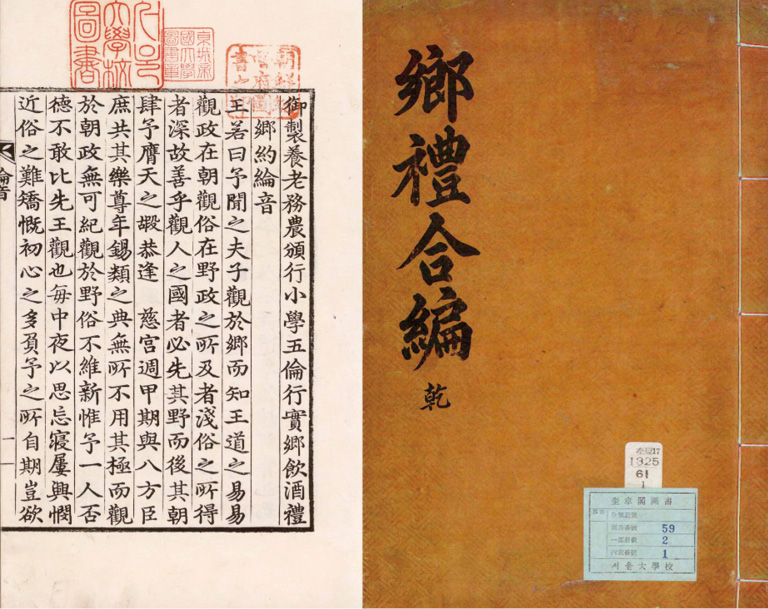 鄉禮合編
乾
1325
61
1
奎章閣圖書
59
2
1
서울大學校
大學校
圖書
御製養老務農頒行小學五倫行實鄉飲酒禮
鄉約綸音
王若曰予聞之夫子觀於鄉而知王道之易易
觀政在朝觀俗在野政之所及者淺俗之所得
者深故善乎觀人之國者必先其野而後其朝
肆予膺天之嘏恭逢 慈宮週甲期與八方臣
庶共其樂尊年錫類之典無所不用其極而觀
於朝政無可紀觀於野俗不維新惟予一人否
德不敢比先王觀也每中夜以思忘寢屢興憫
近俗之難矯慨初心之多負予之所自期豈欲
綸音
一